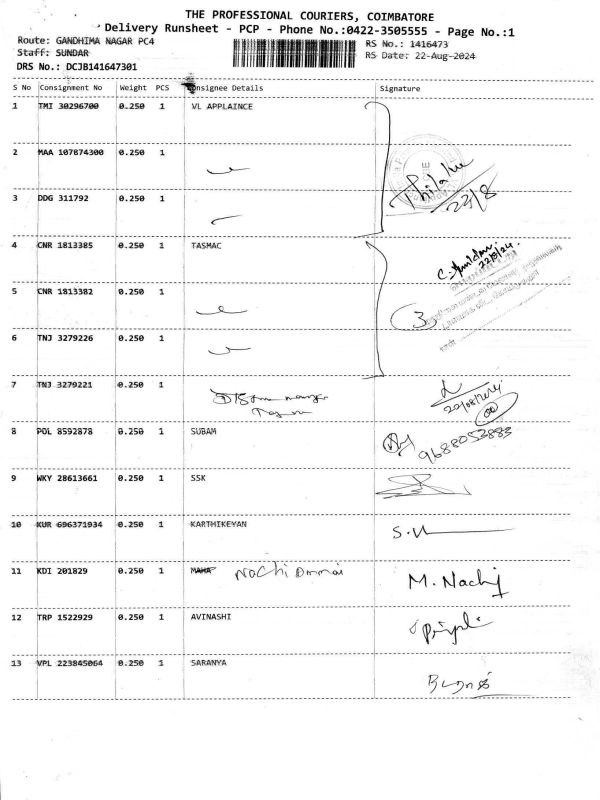 THE PROFESSIONAL COURIERS, COIMBATORE
Delivery Runsheet - PCP - Phone No.:0422-3505555 - Page No.:1
Route: GANDHIMA NAGAR PC4
RS No.: 1416473
Staff: SUNDAR
RS Date: 22-Aug-2024
DRS No.: DCJB141647301
S No Consignment No Weight PCS Consignee Details Signature
1 TMI 30296700 0.250 1 VL APPLAINCE
2 MAA 107874300 0.250 1
3 DDG 311792 0.250 1
22/8
4 CNR 1813385 0.250 1 TASMAC
22/8/24
5 CNR 1813382 0.250 1
3
6 TNJ 3279226 0.250 1
7 TNJ 3279221 0.250 1
22/08/2024
8 POL 8592878 0.250 1 SUBAM
9688052883
9 WKY 28613661 0.250 1 SSK
10 KUR 696371934 0.250 1 KARTHIKEYAN
11 KDI 201829 0.250 1 MAHA Nachi Ammai M. Nachi
12 TRP 1522929 0.250 1 AVINASHI
13 VPL 223845064 0.250 1 SARANYA